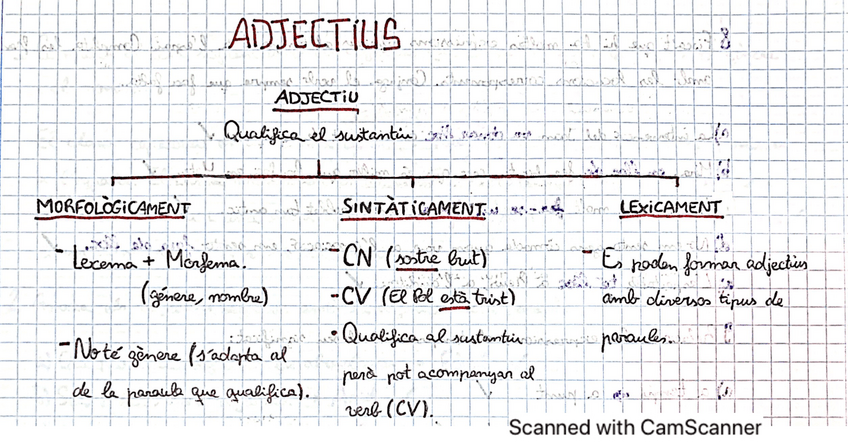 ADJECTIUS
ADJECTIU
Qualifica el sustantiu
MORFOLÒGICAMENT
- Lexema + Morfema.
(génere, nombre)
- No té gènere (s'adapta al
de la paraula que qualifica).
SINTÀTICAMENT
- CN (sostre brut)
- CV (El Pol està trist)
• Qualifica al sustantiu
però pot acompanyar al
verb (CV).
LEXICAMENT
- Es poden formar adjectius
amb diversos tipus de
paraules.
Scanned with CamScanner